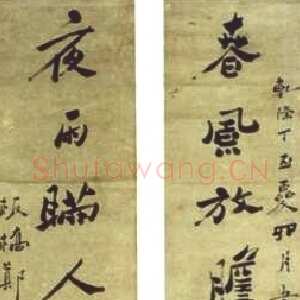 乾隆丁丑夏卯月
春風放膽
夜雨瞞人
板橋鄭
Shufawang.CN